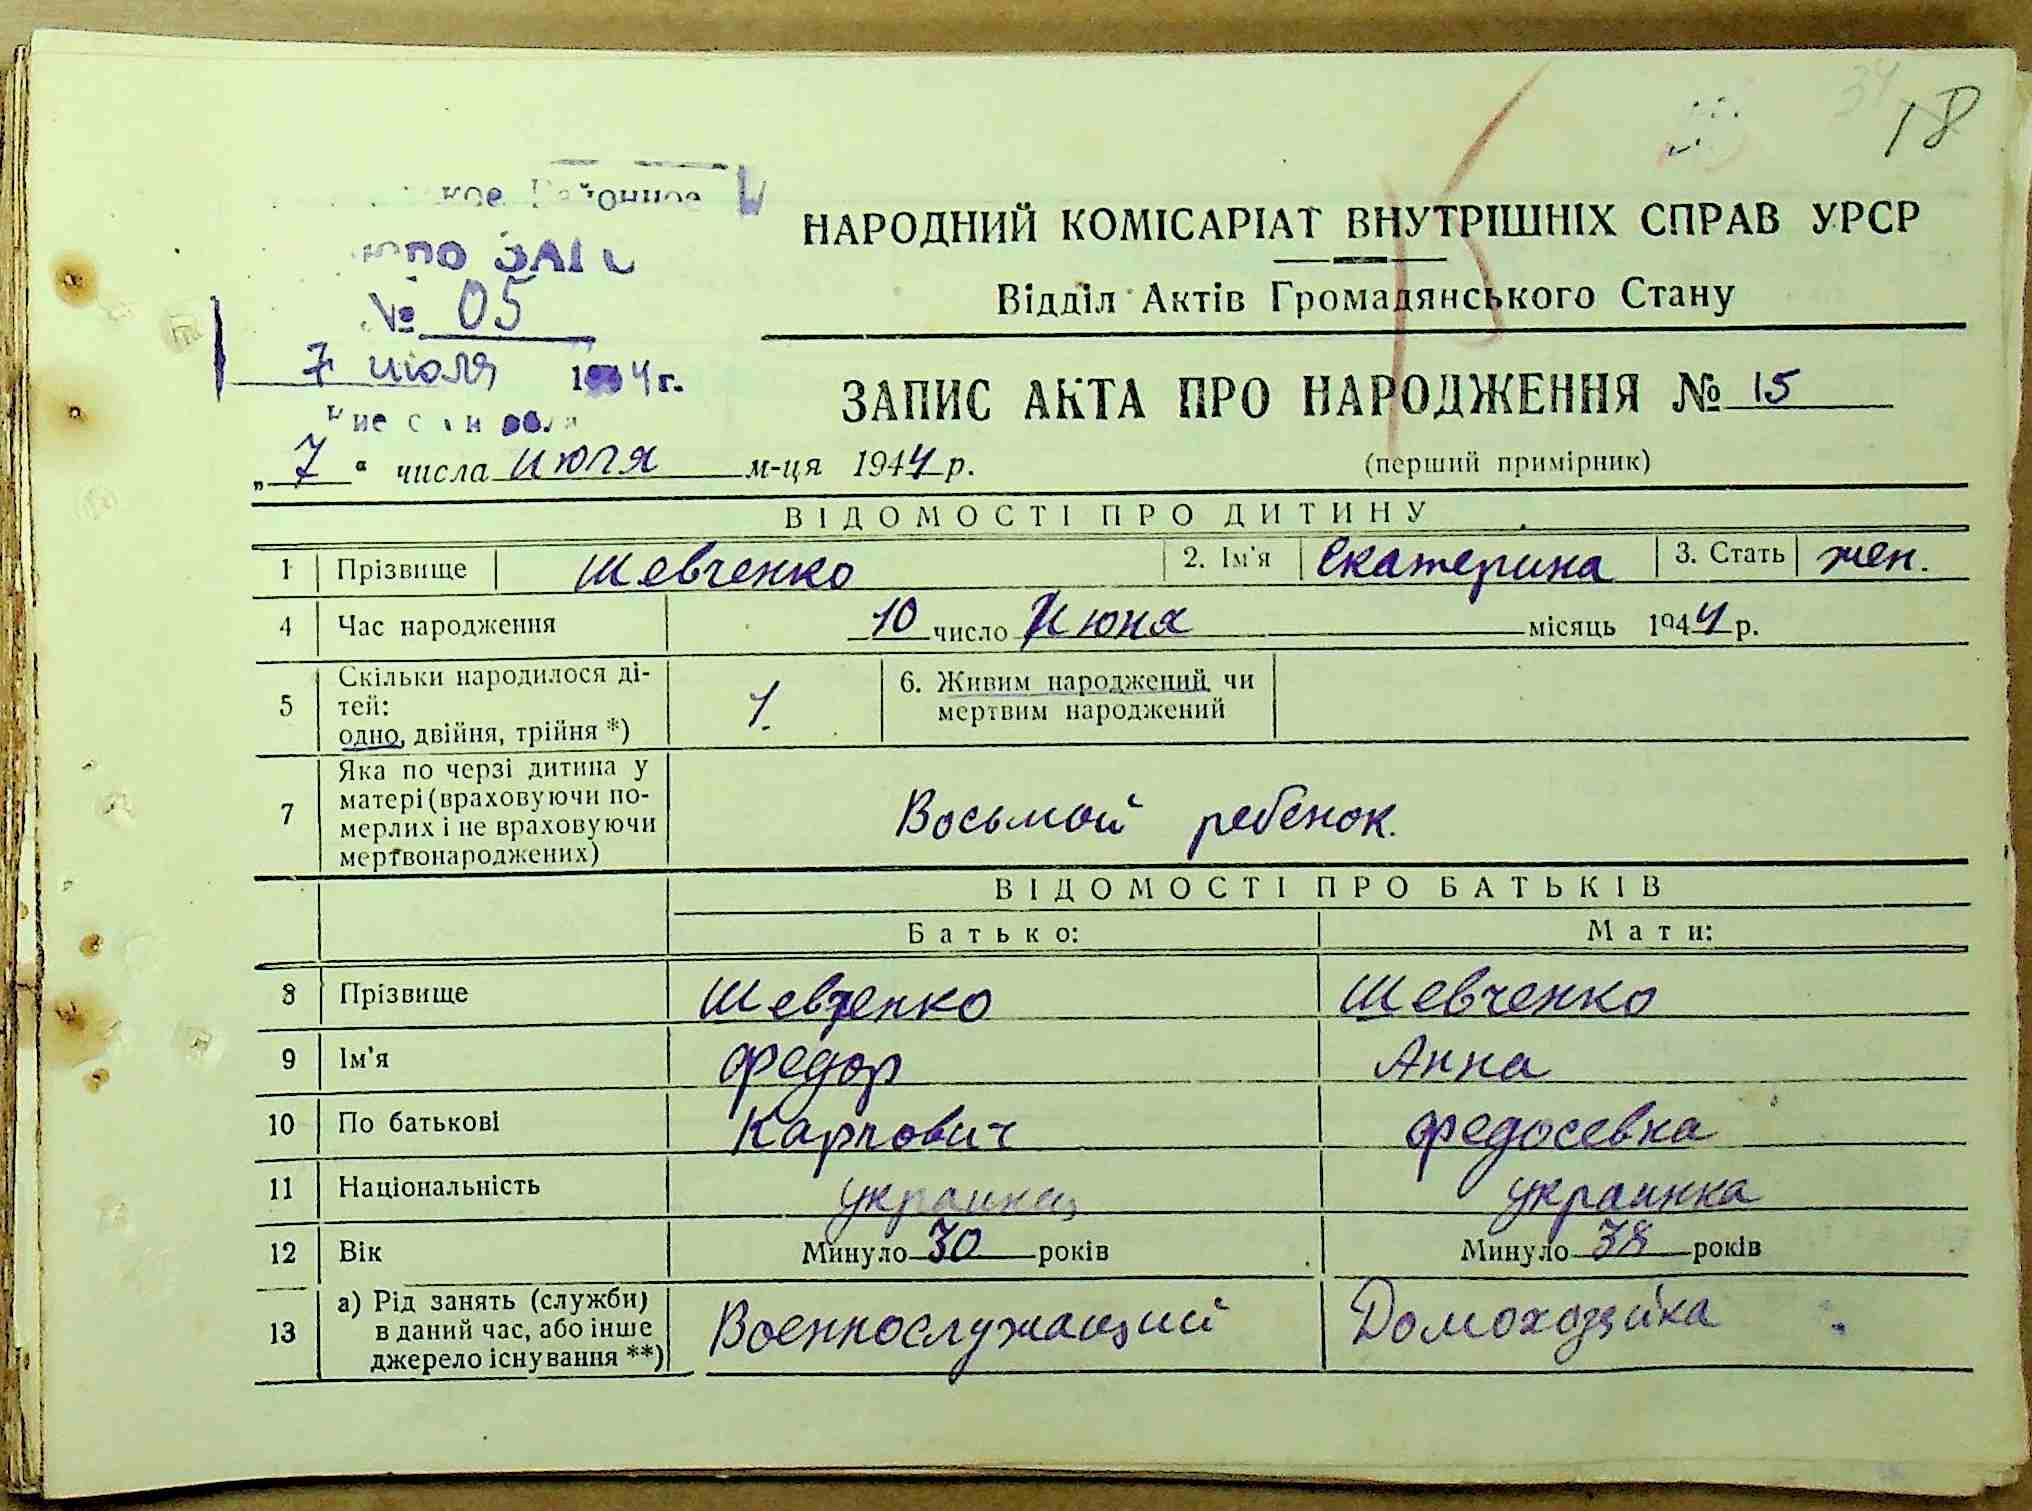 34
18
ЗАГС
№ 05
7 июля 1944 г.
НАРОДНИЙ КОМІСАРІАТ ВНУТРІШНІХ СПРАВ УРСР
Відділ Актів Громадянського Стану
ЗАПИС АКТА ПРО НАРОДЖЕННЯ № 15
„7“ числа июля м-ця 1944 р.
(перший примірник)
ВІДОМОСТІ ПРО ДИТИНУ
1 Прізвище Шевченко 2. Ім'я Екатерина 3. Стать жен.
4 Час народження 10 число Июня місяць 1944 р.
5 Скільки народилося ді-
тей:
одно, двійня, трійня *) 1.
6. Живим народжений чи
мертвим народжений
7 Яка по черзі дитина у
матері (враховуючи по-
мерлих і не враховуючи
мертвонароджених) Восьмой ребенок.
ВІДОМОСТІ ПРО БАТЬКІВ
Батько: Мати:
8 Прізвище Шевченко Шевченко
9 Ім'я Федор Анна
10 По батькові Карпович Федосевна
11 Національність украинец украинка
12 Вік Минуло 30 років Минуло 38 років
13 а) Рід занять (служби)
в даний час, або інше
джерело існування **) Военнослужащий Домохозяйка